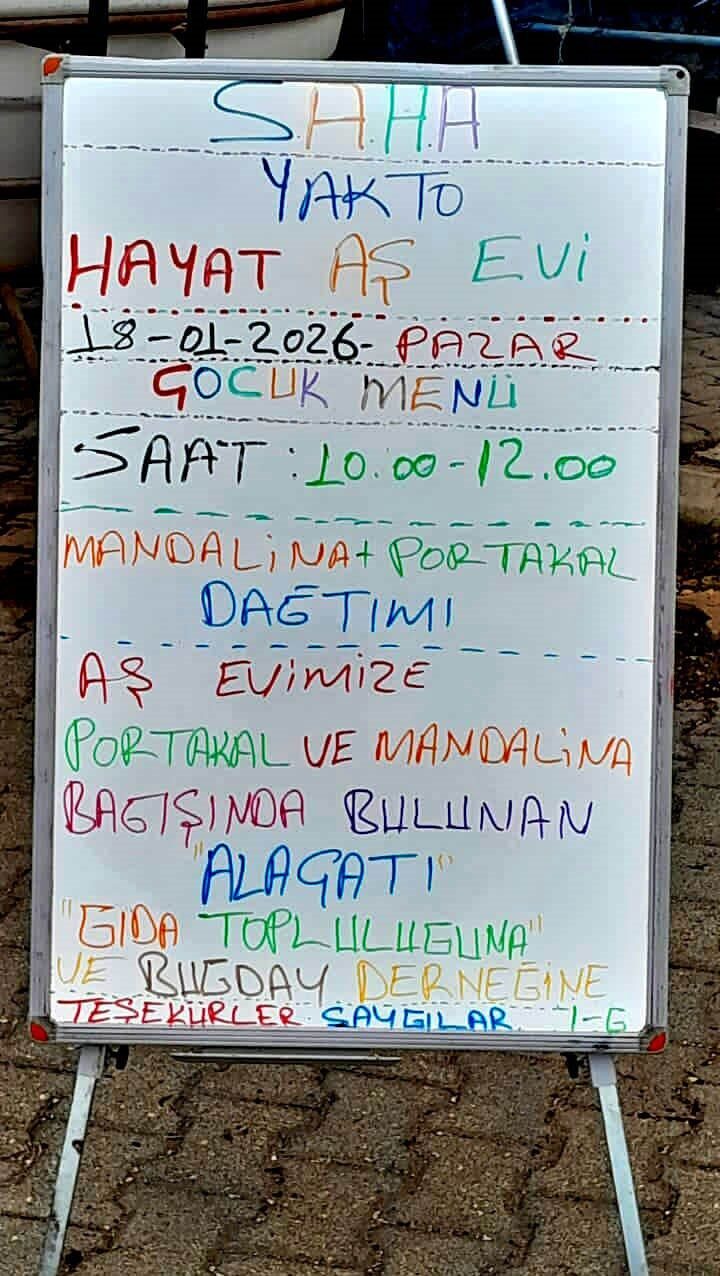 S.A.H.A
YAKTO
HAYAT AŞ EVİ
18-01-2026- PAZAR
ÇOCUK MENÜ
SAAT : 10.00-12.00
MANDALİNA+ PORTAKAL
DAĞTIMI
AŞ EVİMİZE
PORTAKAL VE MANDALİNA
BAGIŞINDA BULUNAN
"ALAÇATI"
"GIDA TOPLULUGUNA"
VE BUGDAY DERNEĞİNE
TEŞEKÜRLER SAYGILAR. İ-G